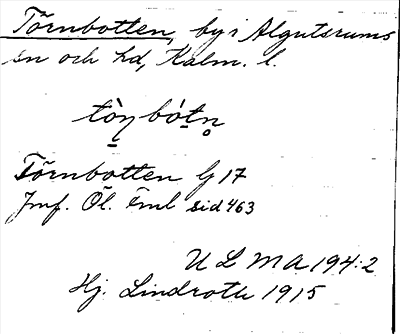 Törnbotten, by i Algutsrums
sn och hd, Kalm. l.
tòn̥bót̠n̥
Törnbotten G 17
Jmf. Öl. Fml sid 463
ULMA 194:2
Hj. Lindroth 1915